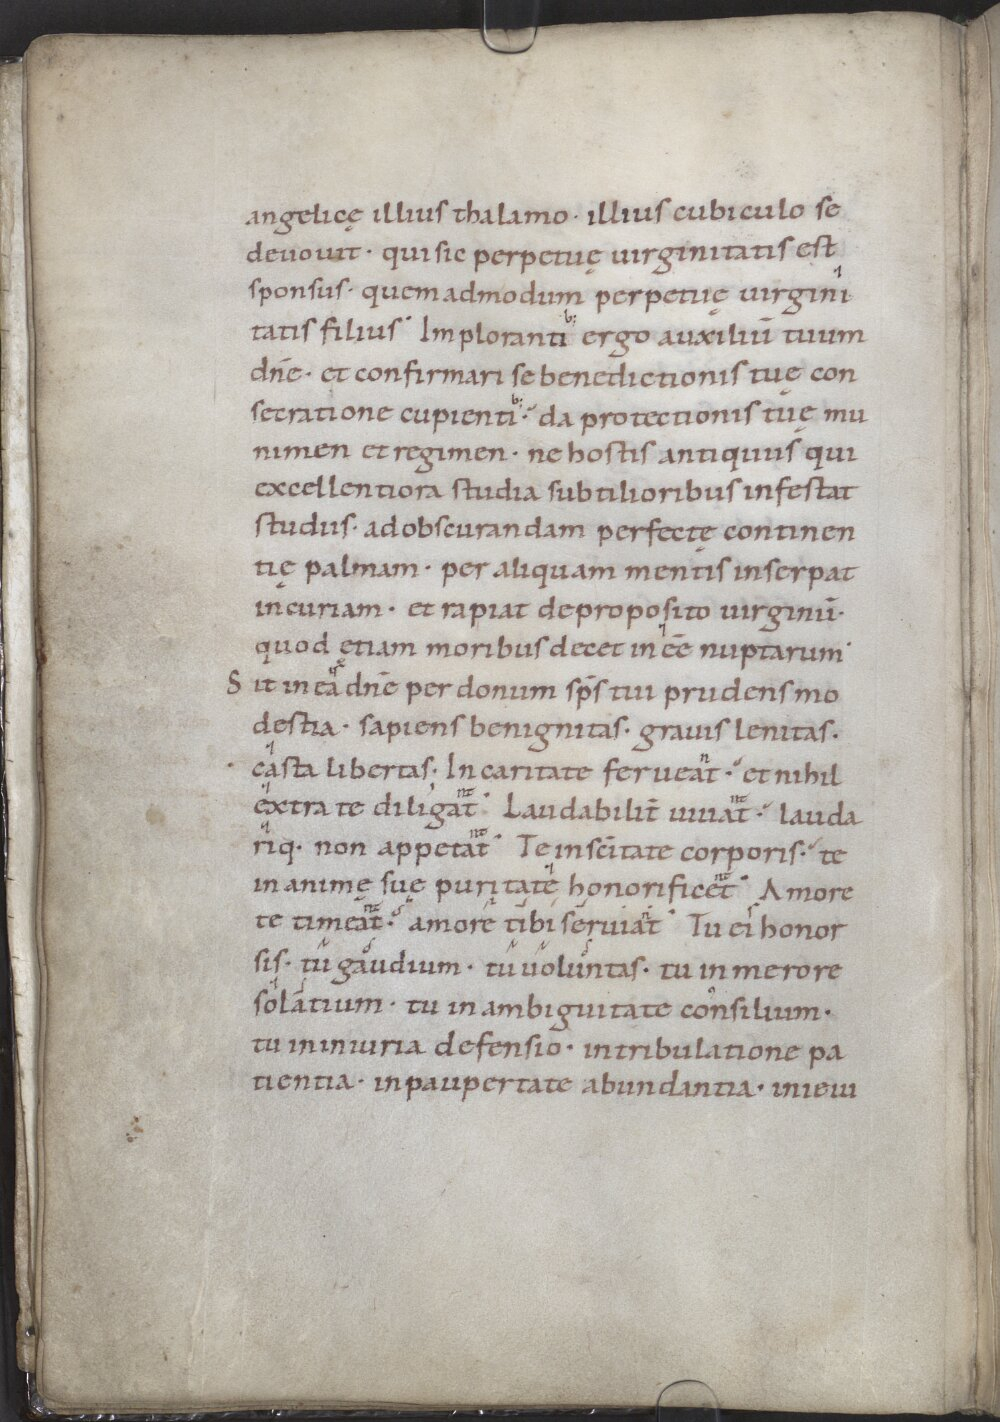 angelicę illius thalamo· illius cubiculo se
deuouit· qui sic perpetuę uirginitatis est
sponsus· quemadmodum perpetuę uirgini
tatis filius· Imploranti b; ergo auxiliū tuum
dn̄e· et confirmari se benedictionis tuę con
secratione cupienti b;· da protectionis tuę mu
nimen et regimen· ne hostis antiquus qui
excellentiora studia subtilioribus infestat
studiis· ad obscurandam perfectę continen
tię palmam· per aliquam mentis inserpat
incuriam· et rapiat de proposito uirginū·
quod ętiam moribus decet in ee̅ nuptarum·
Sit in ea dn̄e per donum sp̄s tui prudens mo
destia· sapiens benignitas· grauis lenitas·
casta libertas· In caritate ferueat nt· et nihil
extra te diligat nt· Laudabilit̄ uiuat nt· lauda
riq· non appetat nt· Te in sc̄itate corporis· te
in animę suę puritate honorificet nt· Amore
te timeat nt· amore tibi seruiat nt· Tu ei s honor
sis· tu gaudium· tu uoluntas· tu in merore
solatium· tu in ambiguitate consilium·
tu in iniuria defensio· in tribulatione pa
tientia· in paupertate abundantia· in ieiu